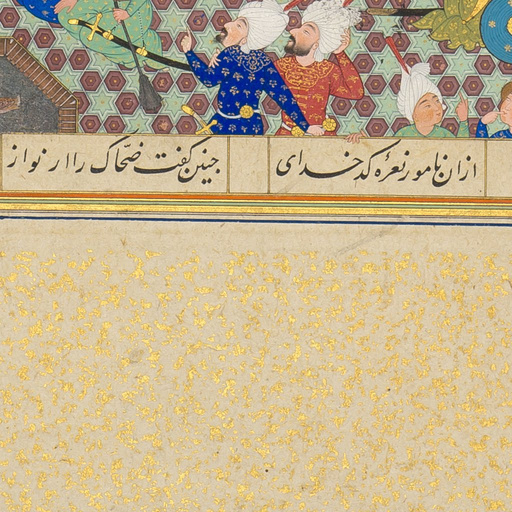 ازان نامور نعرهٔ کدخدای
چنین گفت ضحّاک را ارنواز